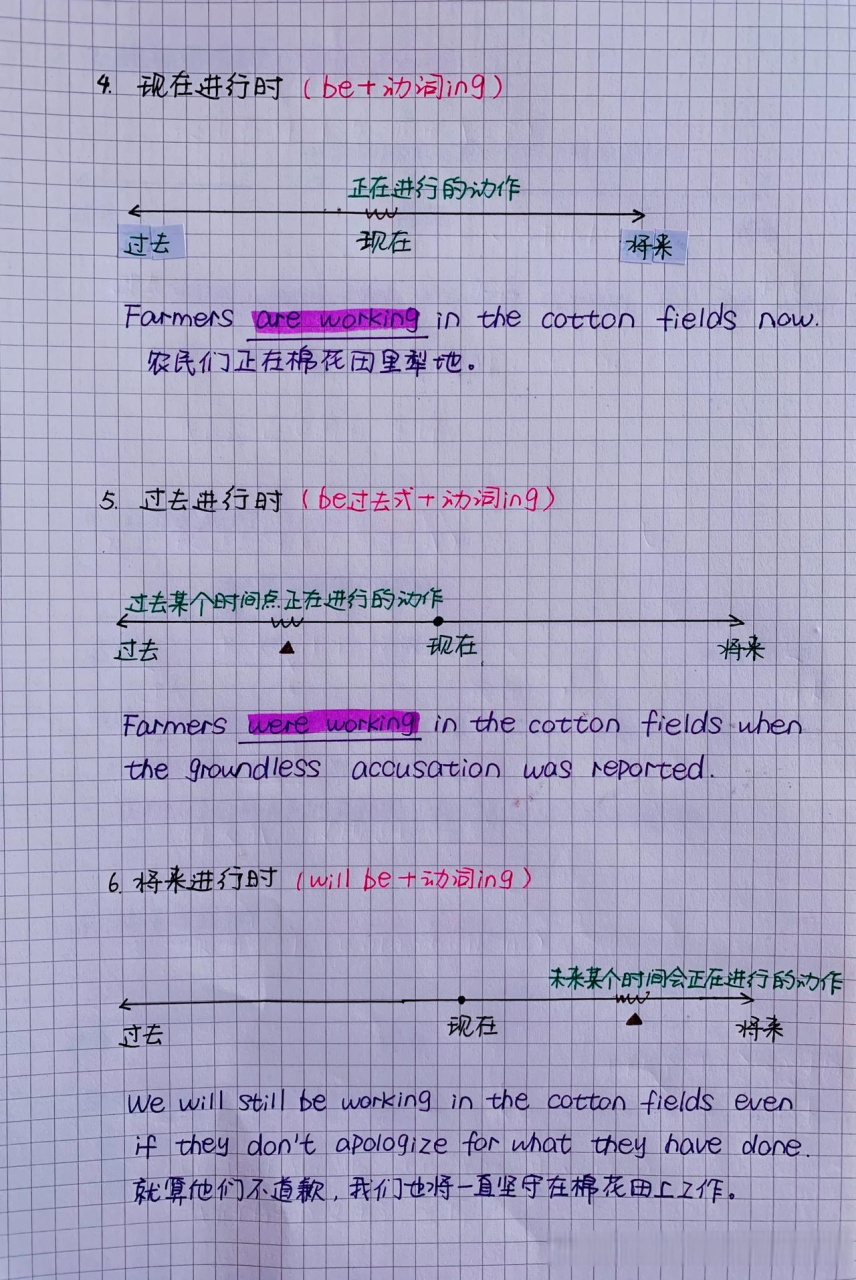 4. 现在进行时（be+动词ing）
正在进行的动作
过去 现在 将来
Farmers are working in the cotton fields now.
农民们正在棉花田里犁地。
5. 过去进行时（be过去式+动词ing）
过去某个时间点正在进行的动作
过去 现在 将来
Farmers were working in the cotton fields when
the groundless accusation was reported.
6. 将来进行时（will be+动词ing）
未来某个时间会正在进行的动作
过去 现在 将来
We will still be working in the cotton fields even
if they don't apologize for what they have done.
就算他们不道歉，我们也将一直坚守在棉花田上工作。